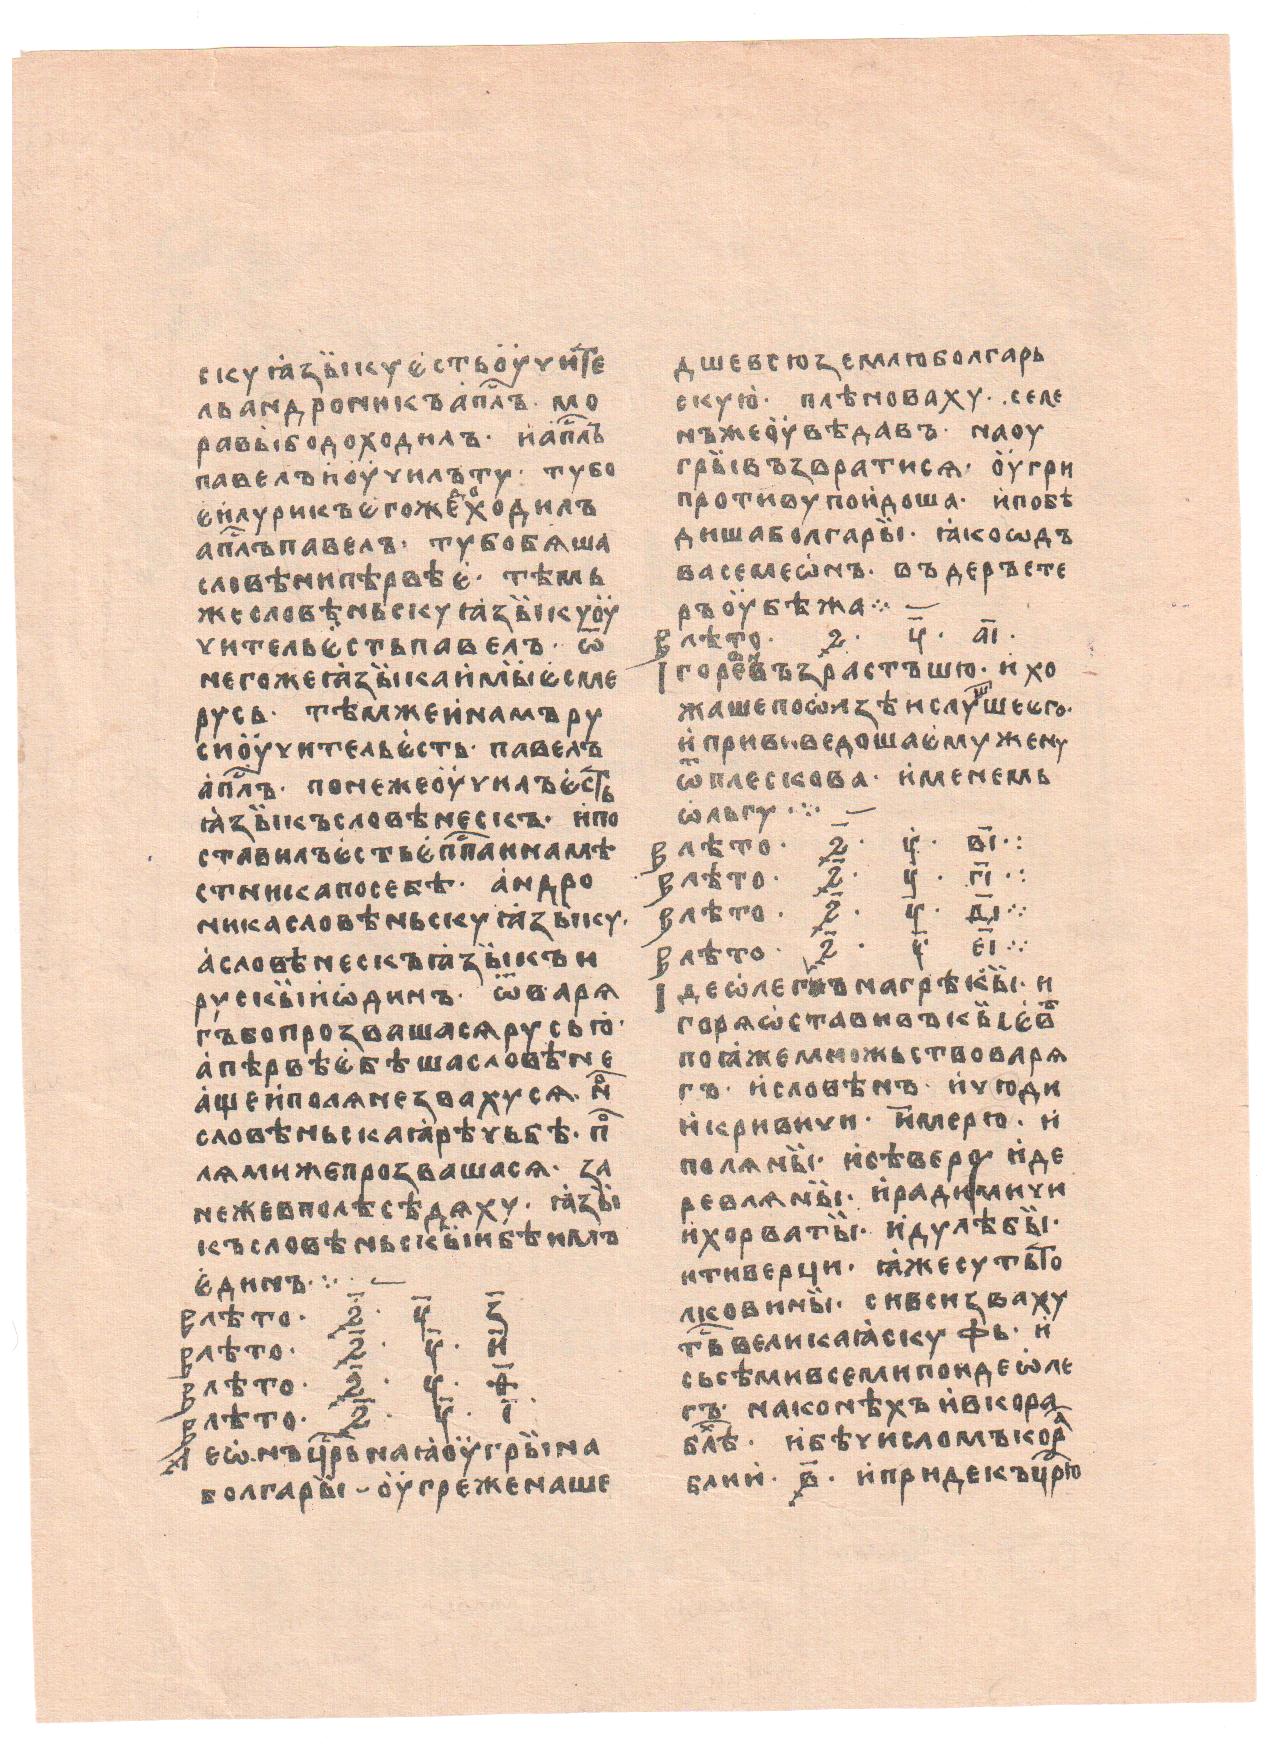 ску ꙗзыку єсть оучите
ль андроникъ апⷭ҇лъ· мо
равы бо доходилъ· и апⷭ҇лъ
павелъ и оучилъ ту· ту бо
є илурикъ єгоже доходилъ
апⷭ҇лъ павелъ· ту бо бѧша
словѣни пѣрвѣє· тѣмь
же словѣньску ꙗзыку оу
читель єсть павелъ· ѿ
негоже ꙗзыка и мы єсме
русь· тѣмже и намъ ру
си оучитель єсть· павелъ
апⷭ҇лъ· понеже оучилъ єсть
ꙗзыкъ словѣнескъ· и по
ставилъ єсть єпⷭ҇па и намѣ
стника по себѣ· андро
ника словѣньску ꙗзыку·
а словѣнескъ ꙗзыкъ и
рускыи ѡдинъ· ѿ варѧ
гъ бо прозвашасѧ русью·
а пѣрвѣє бѣша словѣне
аще и полѧне звахусѧ· нⷪ҇
словѣньскаꙗ рѣчь бѣ· пⷪ҇
лѧми же прозвашасѧ· за
неже в полѣ сѣдѧху· ꙗзы
къ словѣньскыи бѣ имъ
єдинъ ⁘ —
В лѣто· ҂ѕ҃· у҃· з҃
В лѣто· ҂ѕ҃· у҃· и҃
В лѣто· ҂ѕ҃· у҃· ѳ҃
В лѣто· ҂ѕ҃· у҃· і҃
Леѡнъ црⷭ҇ь наꙗ оугры на
болгары – оугре же наше
дше всю землю болгарь
скую· плѣноваху· семе
нъ же оувѣдавъ· на оу
гры възвратисѧ· оугри
противу поидоша· и побѣ
диша болгары· ꙗко ѡдъ
ва семеѡнъ· въ деръсте
ръ оубѣжа ⁘ —
В лѣто· ҂ѕ҃· ч҃· аі҃·
Ігореви възрастъшю· и хо
жаше по ѡлзѣ и слушⷲ҇аше єго·
и приведоша єму жену
ѿ плескова· именемь
ѡльгу ⁘ —
В лѣто· ҂ѕ҃· у҃· ві҃ ⁘
В лѣто· ҂ѕ҃· у҃· гі҃ ⁘
В лѣто· ҂ѕ҃· у҃· ді҃ ⁘
В лѣто· ҂ѕ҃· у҃· єі҃ ⁘
Іде ѡлегъ на грѣкы· и
горѧ ѡставивъ кыєвѣ
поꙗ же множьство варѧ
гъ· и словѣнъ· и чюди
и кривичи· и мерю· и
полѧны· и сѣверо и де
ревлѧны· и радимичи
и хорваты· и дулѣбы·
и тиверци· ꙗже суть то
лковины· си вси зваху
тьⷭ҇ великаꙗ скуфь· и
сь сѣми всеми поиде ѡле
гъ· на конѣхъ и в кора
блѣⷯ· и бѣ числомъ кораⷠ
блии· ҂в҃· и приде къ црⷭ҇ю